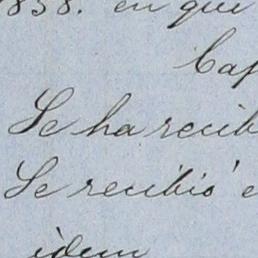 1838. en que
Cap
Se ha recib
Se recibió e
idem